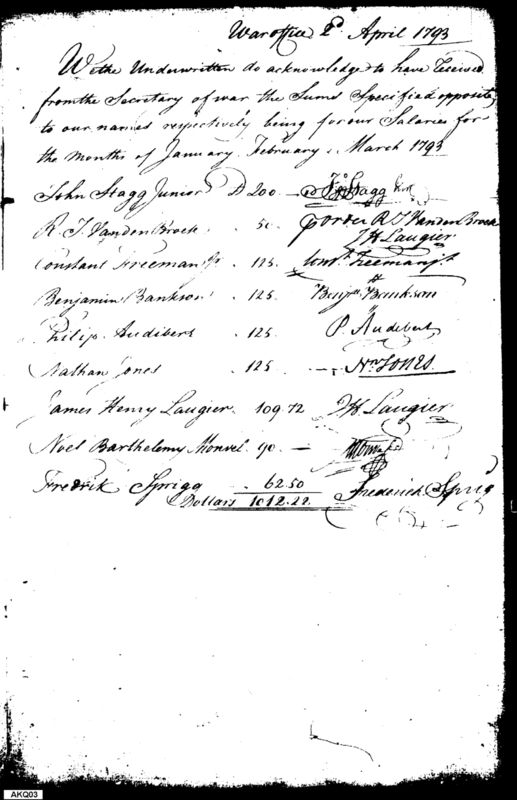 War office 2d April 1793
We the Underwritten do acknowledge to have received
from the Secretary of war the Sums Specified opposite
to our names respectively being for our Salaries for
the months of January, February & March 1793
John Stagg Junior D 200 — Jno Stagg Jnr
R. J. Vanden Broek . 50 p order R J Vanden Broek
J H Laugier
Constant Freeman Jr . 125 Const. Freeman Jr
Benjamin Bankson . 125 Benjn Bankson
Philip Audibert . 125 P. Audebert
Nathan Jones . 125 — Nn Jones
James Henry Laugier . 109.72 J H Laugier
Noel Barthelemy Monvel . 90 —
Fredrik Sprigg . 62.50 Frederick Sprig
Dollars 1012.22
AKQ03